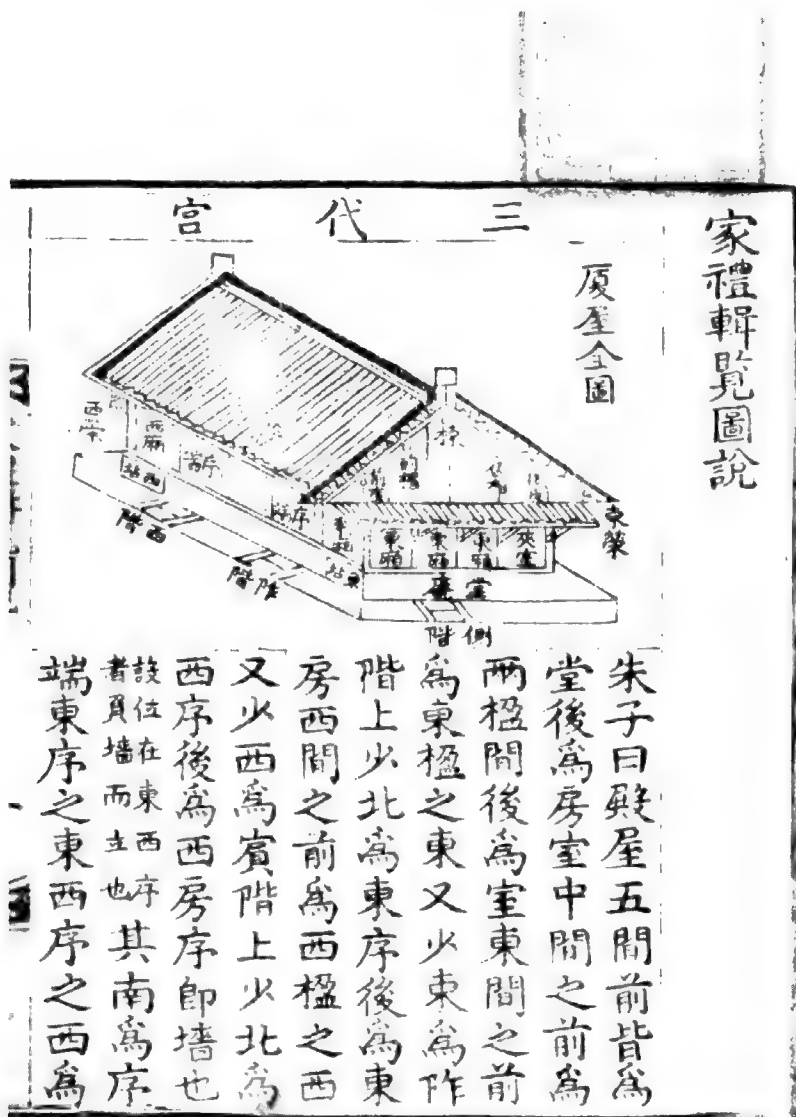 家禮輯覽圖說
三代宮
厦屋全圖
東榮
西榮
棟
序
序
西廂
夾室
東
西階
阼階
側階
朱子曰殿屋五間前皆爲
堂後爲房室中間之前爲
兩楹間後爲室東間之前
爲東楹之東又少東爲阼
階上少北爲東序後爲東
房西間之前爲西楹之西
又少西爲賓階上少北爲
西序後爲西房序即墻也
設位在東西序
者負墻而立也
其南爲序
端東序之東西序之西爲